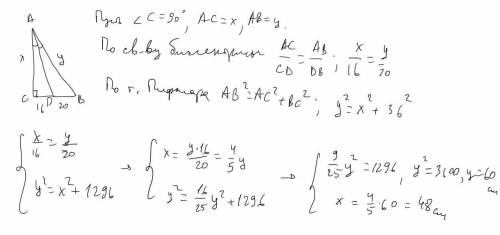 Пусть ∠C = 90°, AC = x, AB = y.
По св-ву биссектрисы AC/CD = AB/DB ; x/16 = y/20
По т. Пифагора AB² = AC² + BC² ; y² = x² + 36²
A
x y
C 16 D 20 B
{ x/16 = y/20
y² = x² + 1296
→ { x = y·16/20 = 4/5 y
y² = 16/25 y² + 1296
→ { 9/25 y² = 1296, y² = 3600, y = 60 см
x = 4/5 · 60 = 48 см